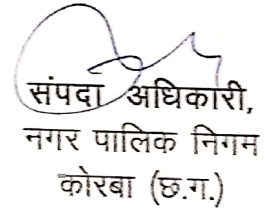 संपदा अधिकारी,
नगर पालिक निगम
कोरबा (छ.ग.)